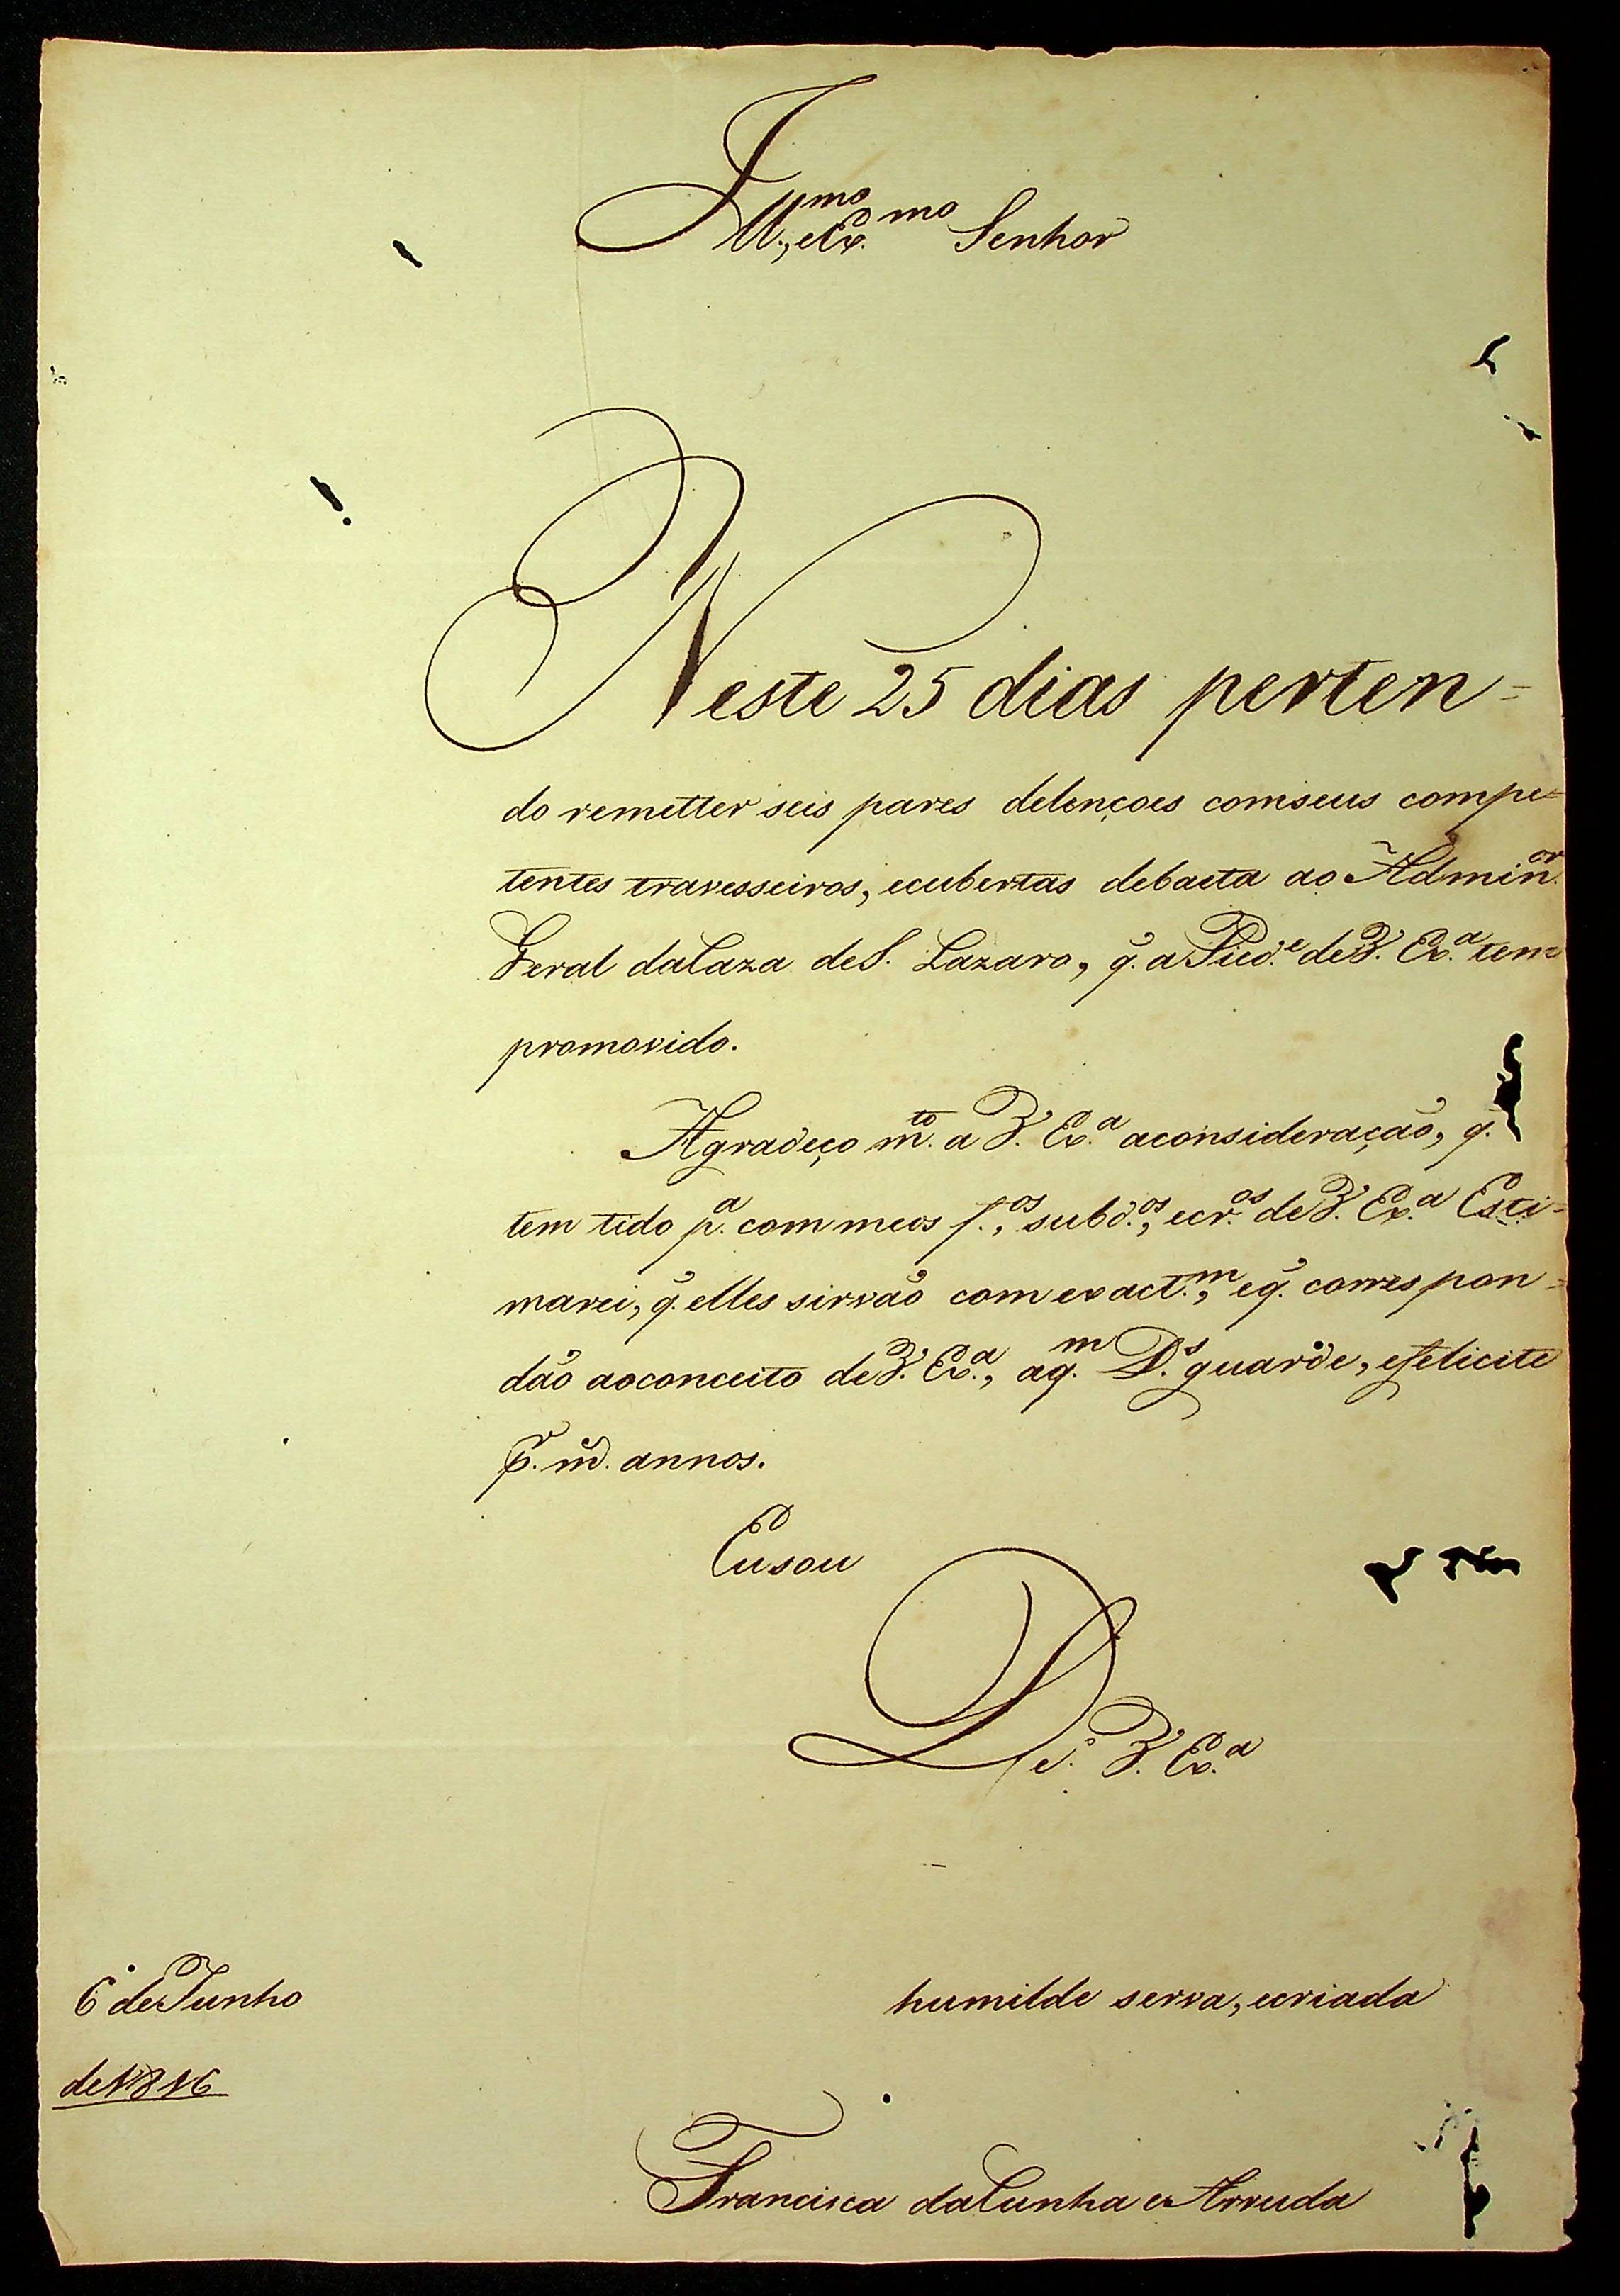 Ill.mo, e Ex.mo Senhor
Neste 25 dias perten=
do remetter seis pares delençoes comseus compe=
tentes travesseiros, ecubertas debaeta ao Admin.or
Geral daCaza deS. Lazaro, q̃. a Pied.e deV. Ex.a tem
promovido.
Agradeço m.to a V. Ex.a aconsideração, q̃.
tem tido p.a com meos f.os, subd.os, ecr.os deV. Ex.a Esti=
marei, q̃. elles sirvão com exact.m, eq̃. correspon=
dão aoconceito deV. Ex.a, aq.m D.s guarde, efelicite
p.r m.s annos.
Eusou
De. V. Ex.a
6 deJunho
de1816
humilde serva, ecriada
Francisca daCunha e Arruda